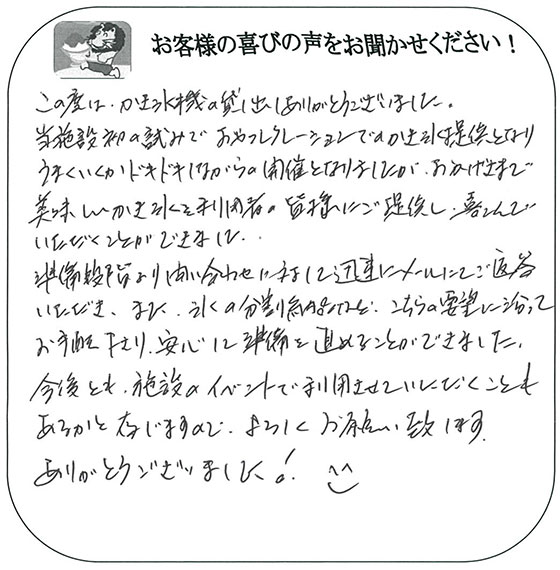 お客様の喜びの声をお聞かせください！
この度は、かき氷機の貸し出しありがとうございました。
当施設初の試みで おやつレクレーションでのかき氷提供となり
うまくいくかドキドキしながらの開催となりましたが、おかげさまで
美味しいかき氷を利用者の皆様にご提供し、喜こんで
いただくことができました。
準備段階より問い合わせに対して迅速にメールにてご返答
いただき、また、氷の分割納品など、こちらの要望に沿って
お手配下さり、安心して準備を進めることができました。
今後とも、施設のイベントで利用させていただくことも
あるかと存じますので、よろしくお願い致します。
ありがとうございました！